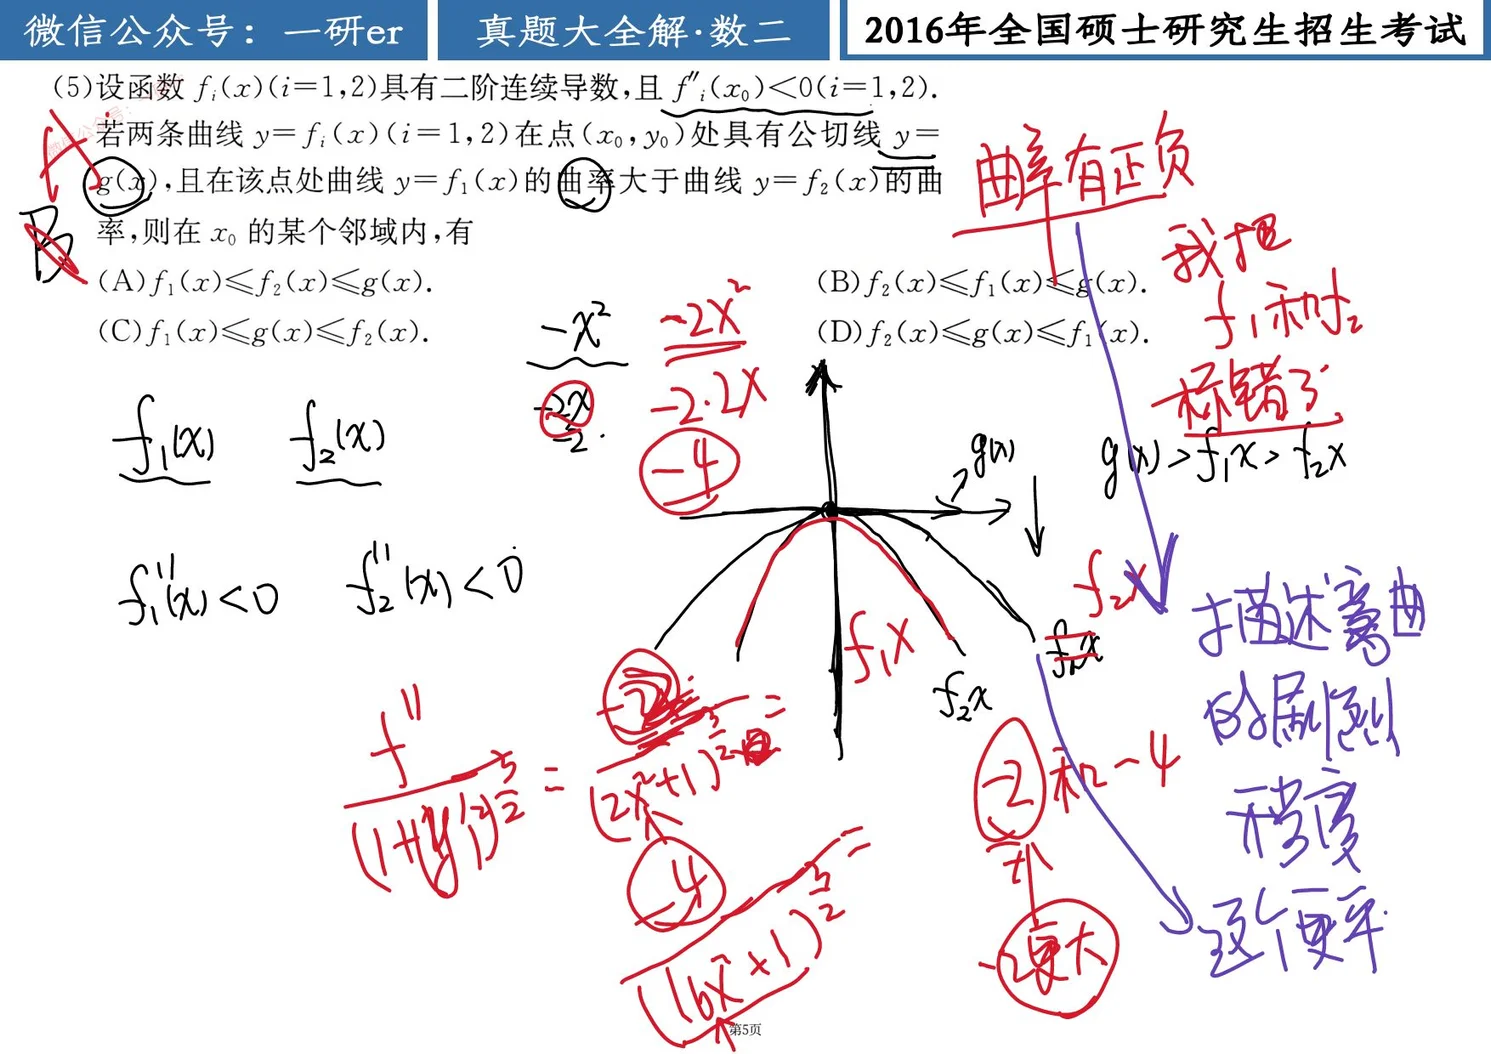 微信公众号：一研er
真题大全解·数二
2016年全国硕士研究生招生考试
(5)设函数 fᵢ(x)(i=1,2)具有二阶连续导数,且 f″ᵢ(x₀)<0(i=1,2).
若两条曲线 y=fᵢ(x)(i=1,2)在点(x₀,y₀)处具有公切线 y=
g(x),且在该点处曲线 y=f₁(x)的曲率大于曲线 y=f₂(x)的曲
率,则在 x₀ 的某个邻域内,有
(A)f₁(x)≤f₂(x)≤g(x).
(B)f₂(x)≤f₁(x)≤g(x).
(C)f₁(x)≤g(x)≤f₂(x).
(D)f₂(x)≤g(x)≤f₁(x).
A
B
曲率有正负
我把
f₁和f₂
标错了
-x²
-2x²
-2x
-2·2x
-2
-4
f₁(x)
f₂(x)
g(x)
g(x)>f₁x>f₂x
f₁″(x)<0
f₂″(x)<0
f₂x
f₁x
f₂x
描述弯曲
的剧烈
程度
这个更平
-2和-4
-2更大
-4
第5页